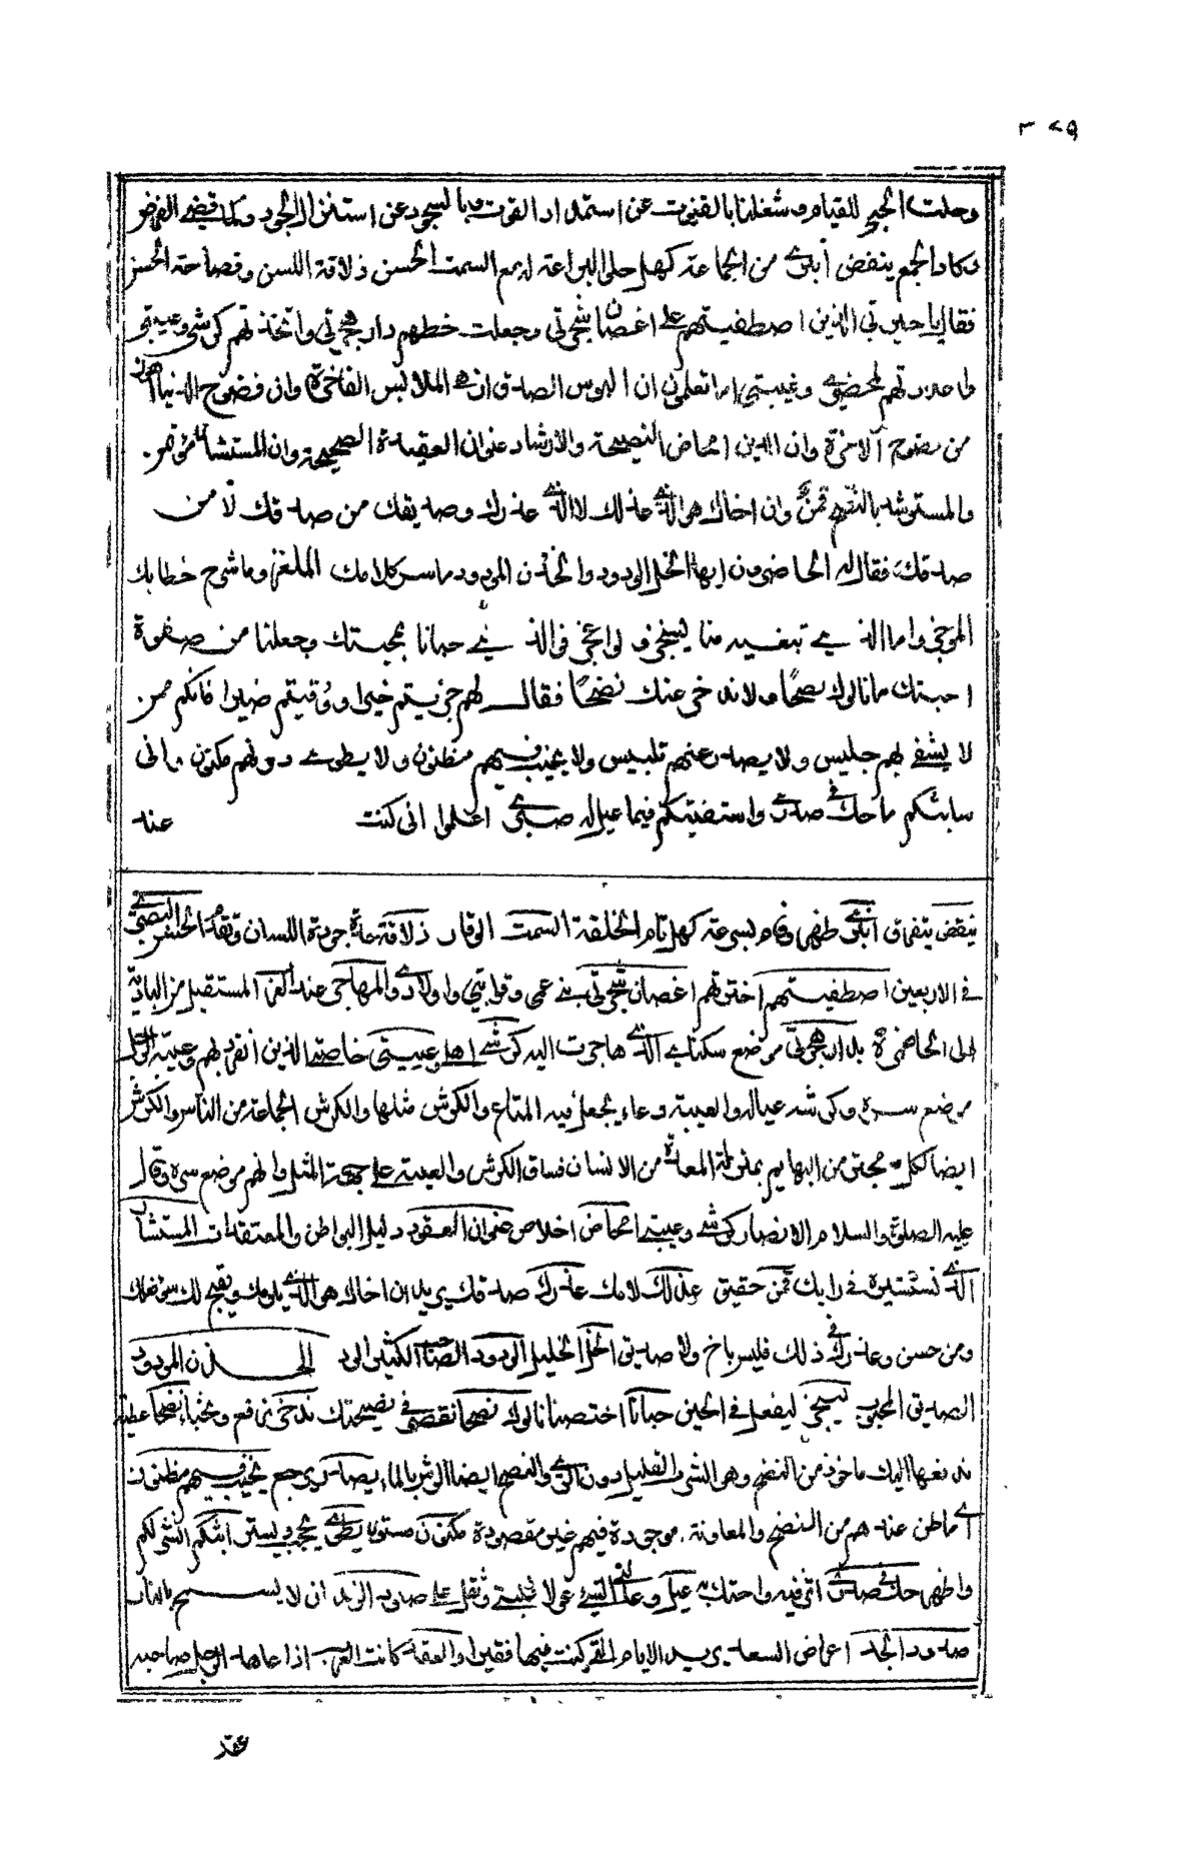 ٣٧٩
وحلت الحبى للقيام وشغلنا بالقنوت عن استمداد القوت وبالسجود عن استنزال الجود ولما قضي الفرض
وكاد الجمع ينفض أنبرى من الجماعة كهل حلو البراعة له مع السمت الحسن ذلاقة اللسن وفصاحة الحسن
فقال يا جيرتي الذين اصطفيتهم على اغصان شجرتي وجعلت خطهم دار هجرتي واتخذتهم كرشي وعيبتي
واعددتهم لمحضري وغيبتي اما تعلمون ان لبوس الصدق ابهى الملابس الفاخرة وان فضوح الدنيا اهون
من فضوح الاخرة وان الدين امحاض النصيحة والارشاد عنوان العقيدة الصحيحة وان المستشار مؤتمن
والمسترشد بالنصح قمن وان اخاك هو الذي عذلك لا الذي عذرك وصديقك من صدقك لا من
صدقك فقال له الحاضرون ايها الخل الودود والخدن المودود ما سر كلامك الملغز وما شرح خطابك
الموجز وما الذي تبغيه منا لينجز فوالذي حبانا بمحبتك وجعلنا من صفوة
احبتك ما نالوك نصحا ولا ندخر عنك نضحا فقال لهم جزيتم خيرا ووقيتم ضيرا فانكم ممن
لا يشقى بهم جليس ولا يصدر عنهم تلبيس ولا يخيب فيهم مظنون ولا يطوى دونهم مكنون واني
سابثكم ما حك في صدري واستفتيكم فيما عيل له صبري اعلموا اني كنت عند
ينقض يتفرق انبرى ظهر وقام بسرعة كهل تام الخلقة السمت الوقار ذلاقة حدة جودة اللسان وتقدم الحسن البصري
في الاربعين اصطفيتهم اخترتهم اغصان شجرتي بني عمي وقرابتي واولادي والمهاجر عند العرب المستقبل من البادية
الى الحاضرة دار هجرتي موضع سكناي الذي هاجرت اليه كرشي اهلي وعيبتي خاصتي الذين انفرد بهم وعيبة الرجل
موضع سره وكرشه عياله والعيبة وعاء يجعل فيه المتاع والكرش مثلها والكرش الجماعة من الناس والكرش
ايضا لكل مجتر من البهايم بمنزلة المعدة من الانسان فساق الكرش والعيبة على جهة المثل وانهم موضع سره وقال
عليه الصلوة والسلام الانصار كرشي وعيبتي امحاض اخلاص عنوان العقود دليل البواطن والمعتقدات المستشار
الذي تستشيره في رايك قمن حقيق عذلك لامك عذرك صدقك يريد ان اخاك هو الذي يلومك ويقبح لك سوء فعلك
ومن حسن وعذرك في ذلك فليس باخ ولا صديق الخل الخليل الودود الصاحب الكثير الود الخدن المودود
الصديق المحبوب لينجز ليفعل في الحين حبانا اختصنا نالوك نصحا نقصر في نصيحتك ندخر نرفع ونخبا نضحا عطية
ندفعها اليك ماخوذ من النضح وهو الشرب القليل دون الري والنضح ايضا الرش بالماء يصدر يرجع يخيب فيهم مظنون
اي ما ظن عندهم من النصح والمعاونة موجودة فيهم غير مقصودة مكنون مستور يطوى يحجب ويستر ابثكم انشر لكم
واظهر حك في صدري اثر فيه واحتك به عيل وعلني الشيء عولا غلبني وثقل علي صلود الزند ان لا يسمح بالنار
صدود الجد اعراض السعد يريد الايام التي كنت فيها فقيرا والعقد كانت العرب اذا عاهد الرجل صاحبه
عقد